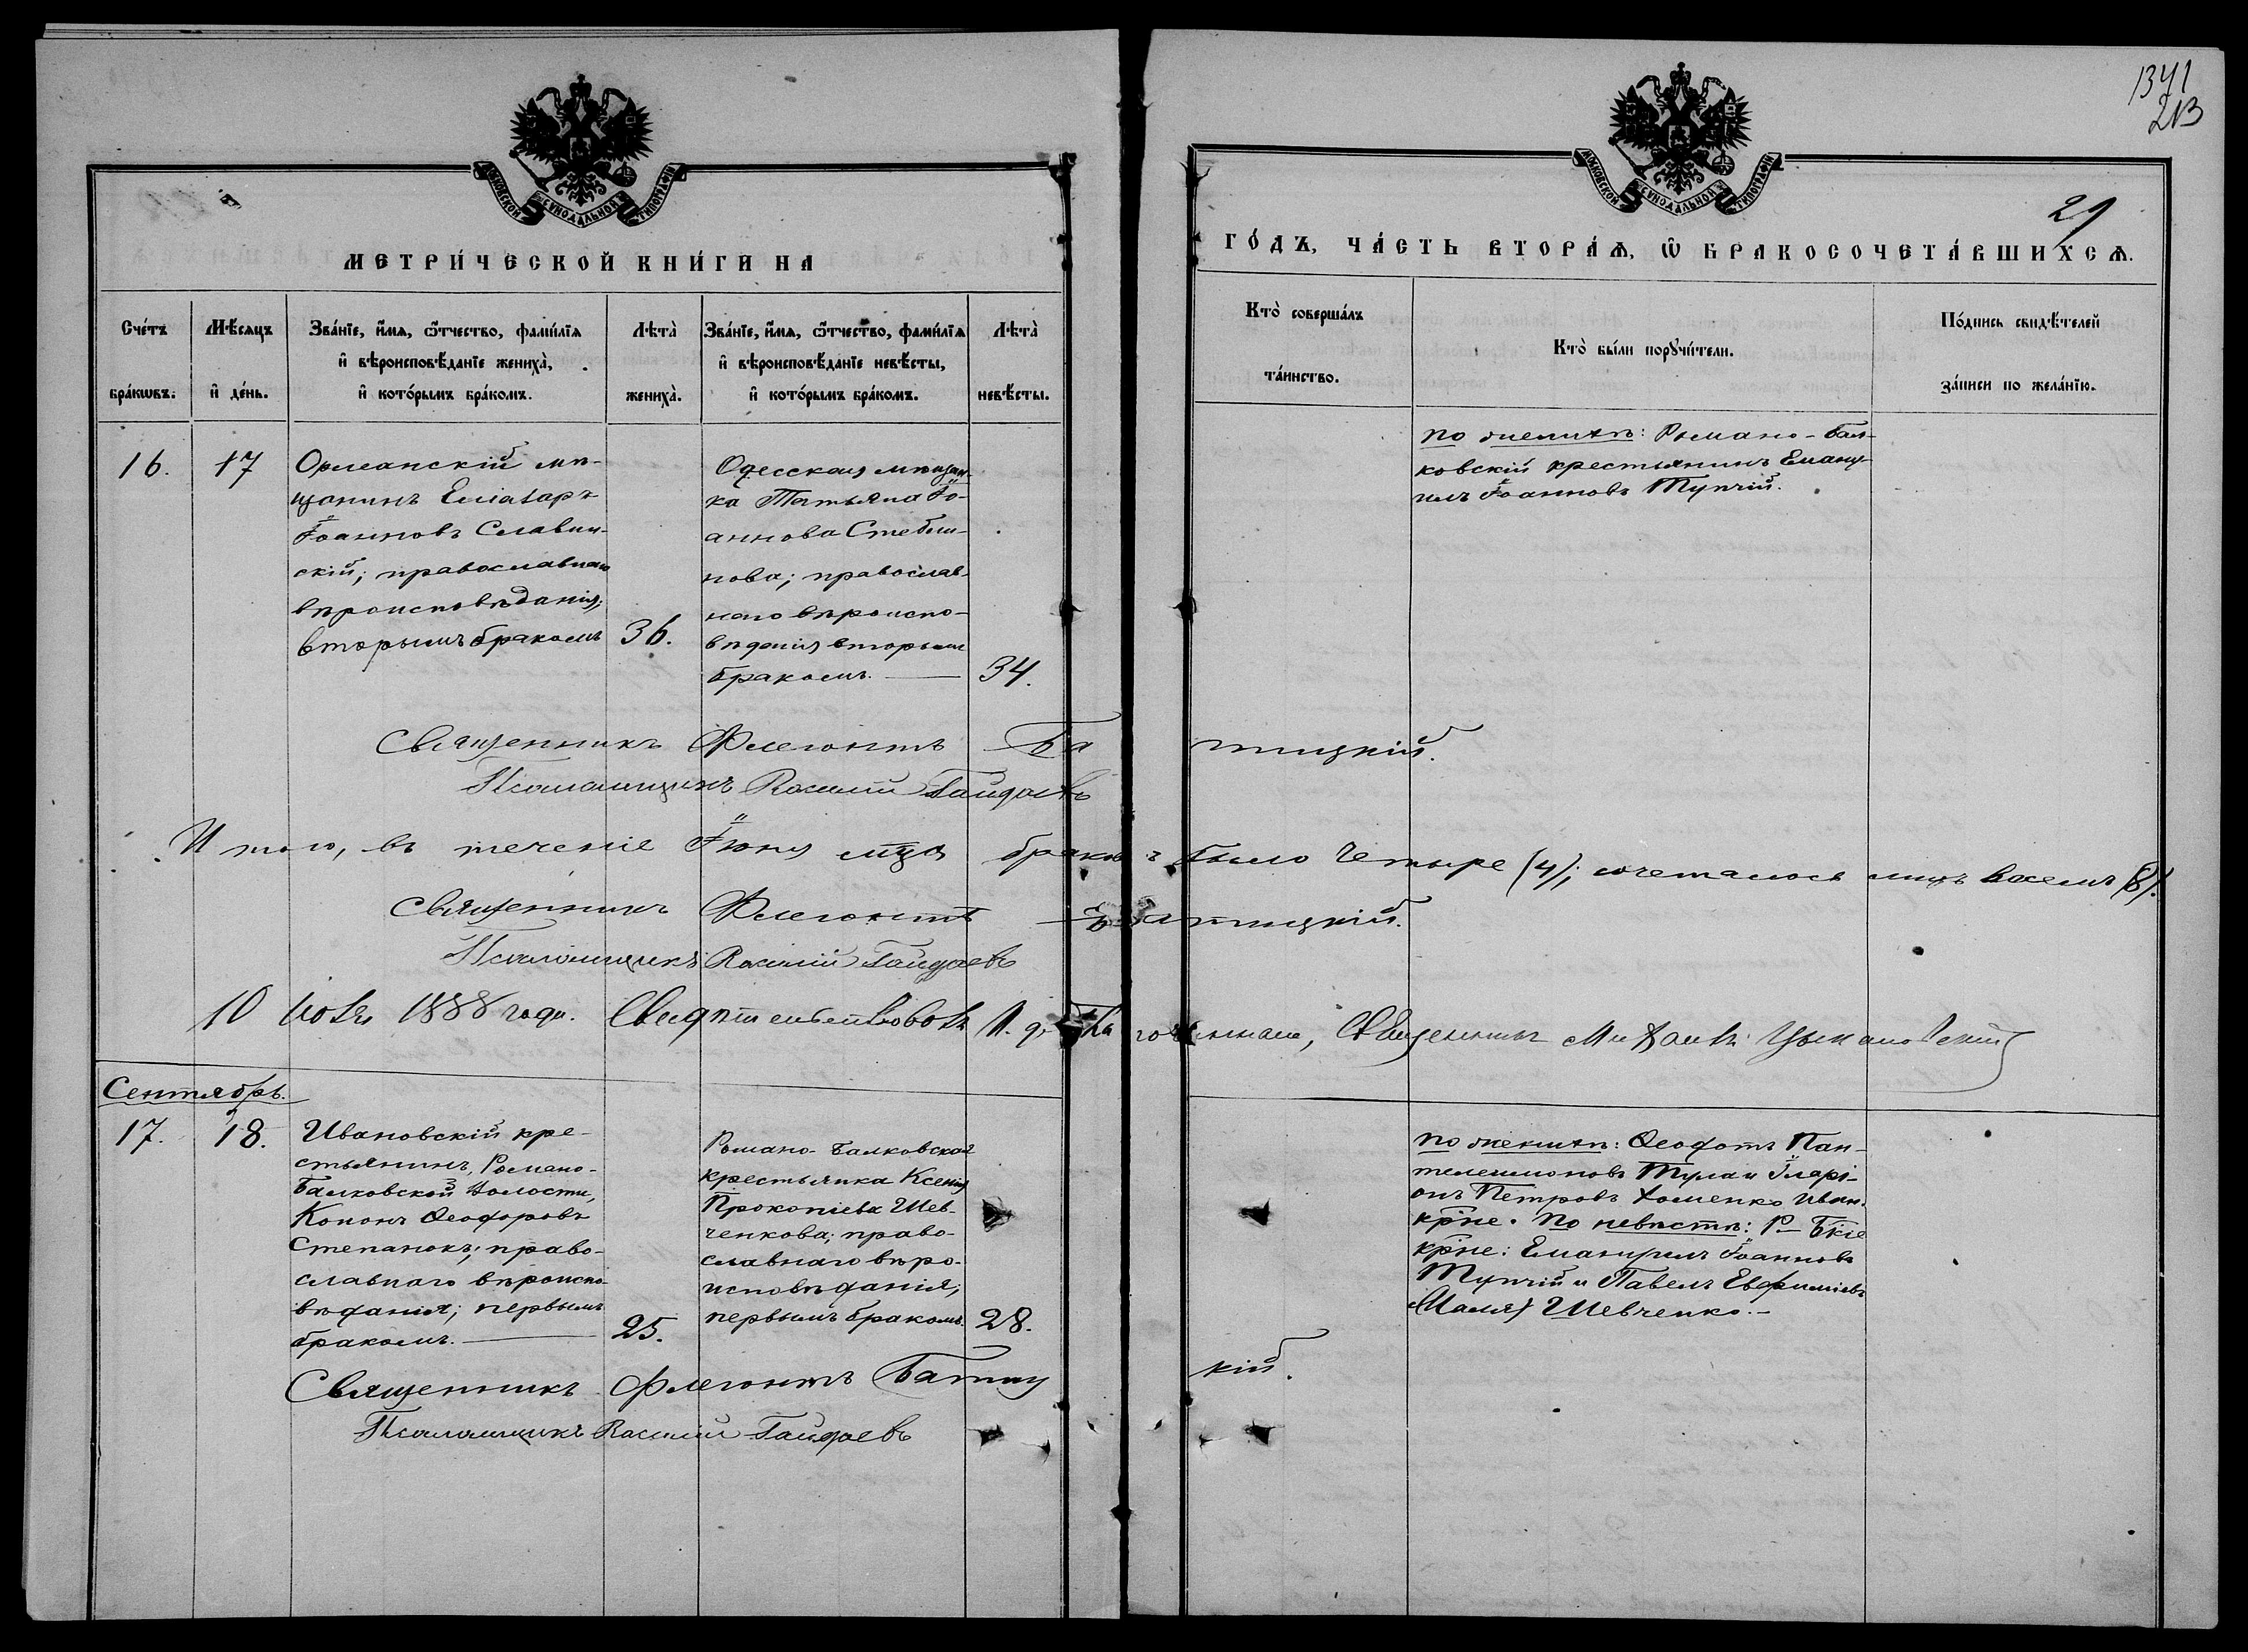 1341
213
МОСКОВСКОЙ СѴНОДАЛЬНОЙ ТИПОГРАФІИ
МОСКОВСКОЙ СѴНОДАЛЬНОЙ ТИПОГРАФІИ
29
МЕТРИ́ЧЕСКОЙ КНИ́ГИ НА
ГО́ДЪ, ЧА́СТЬ ВТОРА́Ѧ, Ѡ҆ БРАКОСОЧЕТА́ВШИХСѦ.
Сче́тъ бра́кѡвъ.
Мѣ́сѧцъ и҆ де́нь.
Зва́нїе, и҆́мѧ, ѻ҆́тчество, фами́лїѧ
и҆ вѣроисповѣ́данїе жениха̀,
и҆ кото́рымъ бра́комъ.
Лѣта̀ жениха̀.
Зва́нїе, и҆́мѧ, ѻ҆́тчество, фами́лїѧ
и҆ вѣроисповѣ́данїе невѣ́сты,
и҆ кото́рымъ бра́комъ.
Лѣта̀ невѣ́сты.
Кто̀ соверша́лъ
та́инство.
Кто̀ бы́ли порꙋчи́тели.
По́дпись свидѣ́телей
за́писи по жела́нїю.
16.
17
Орлеанскій мѣ-
щанинъ Еліазаръ
Іоанновъ Славин-
скій; православнаго
вѣроисповѣданія;
вторымъ бракомъ
36.
Одесская мѣщан-
ка Татьяна Іо-
аннова Стебли-
нова; православ-
наго вѣроиспо-
вѣданія вторымъ
бракомъ.
34.
по женихѣ: Романо-Бал-
ковскій крестьянинъ Еману-
илъ Іоанновъ Тупчій.
Священникъ Флегонтъ Батицкій.
Псаломщикъ Василій Гайдаевъ
Итого, въ теченіе Іюня мѣца браковъ было четыре (4); сочеталось лицъ восемь (8).
Священникъ Флегонтъ Батицкій.
Псаломщикъ Василій Гайдаевъ
10 1888 года. Свидѣтельствовалъ И. д. Благочиннаго, Священникъ Михаилъ
Сентябрь.
17.
18.
Ивановскій кре-
стьянинъ, Романо-
Балковской волости,
Кононъ Ѳеодоровъ
Степанокъ; право-
славнаго вѣроиспо-
вѣданія; первымъ
бракомъ.
25.
Романо-Балковская
крестьянка Ксенія
Прокопіева Шев-
ченкова; право-
славнаго вѣро-
исповѣданія;
первымъ бракомъ.
28.
по женихѣ: Ѳеодотъ Пан-
телеимоновъ Тула и Иларі-
онъ Петровъ Хоменко Иван.
кр̃не. по невѣстѣ: Р— Бкіе
кр̃не: Емануилъ Іоанновъ
Тупчій и Павелъ Евфиміевъ
Шевченко.
Священникъ Флегонтъ Батицкій.
Псаломщикъ Василій Гайдаевъ